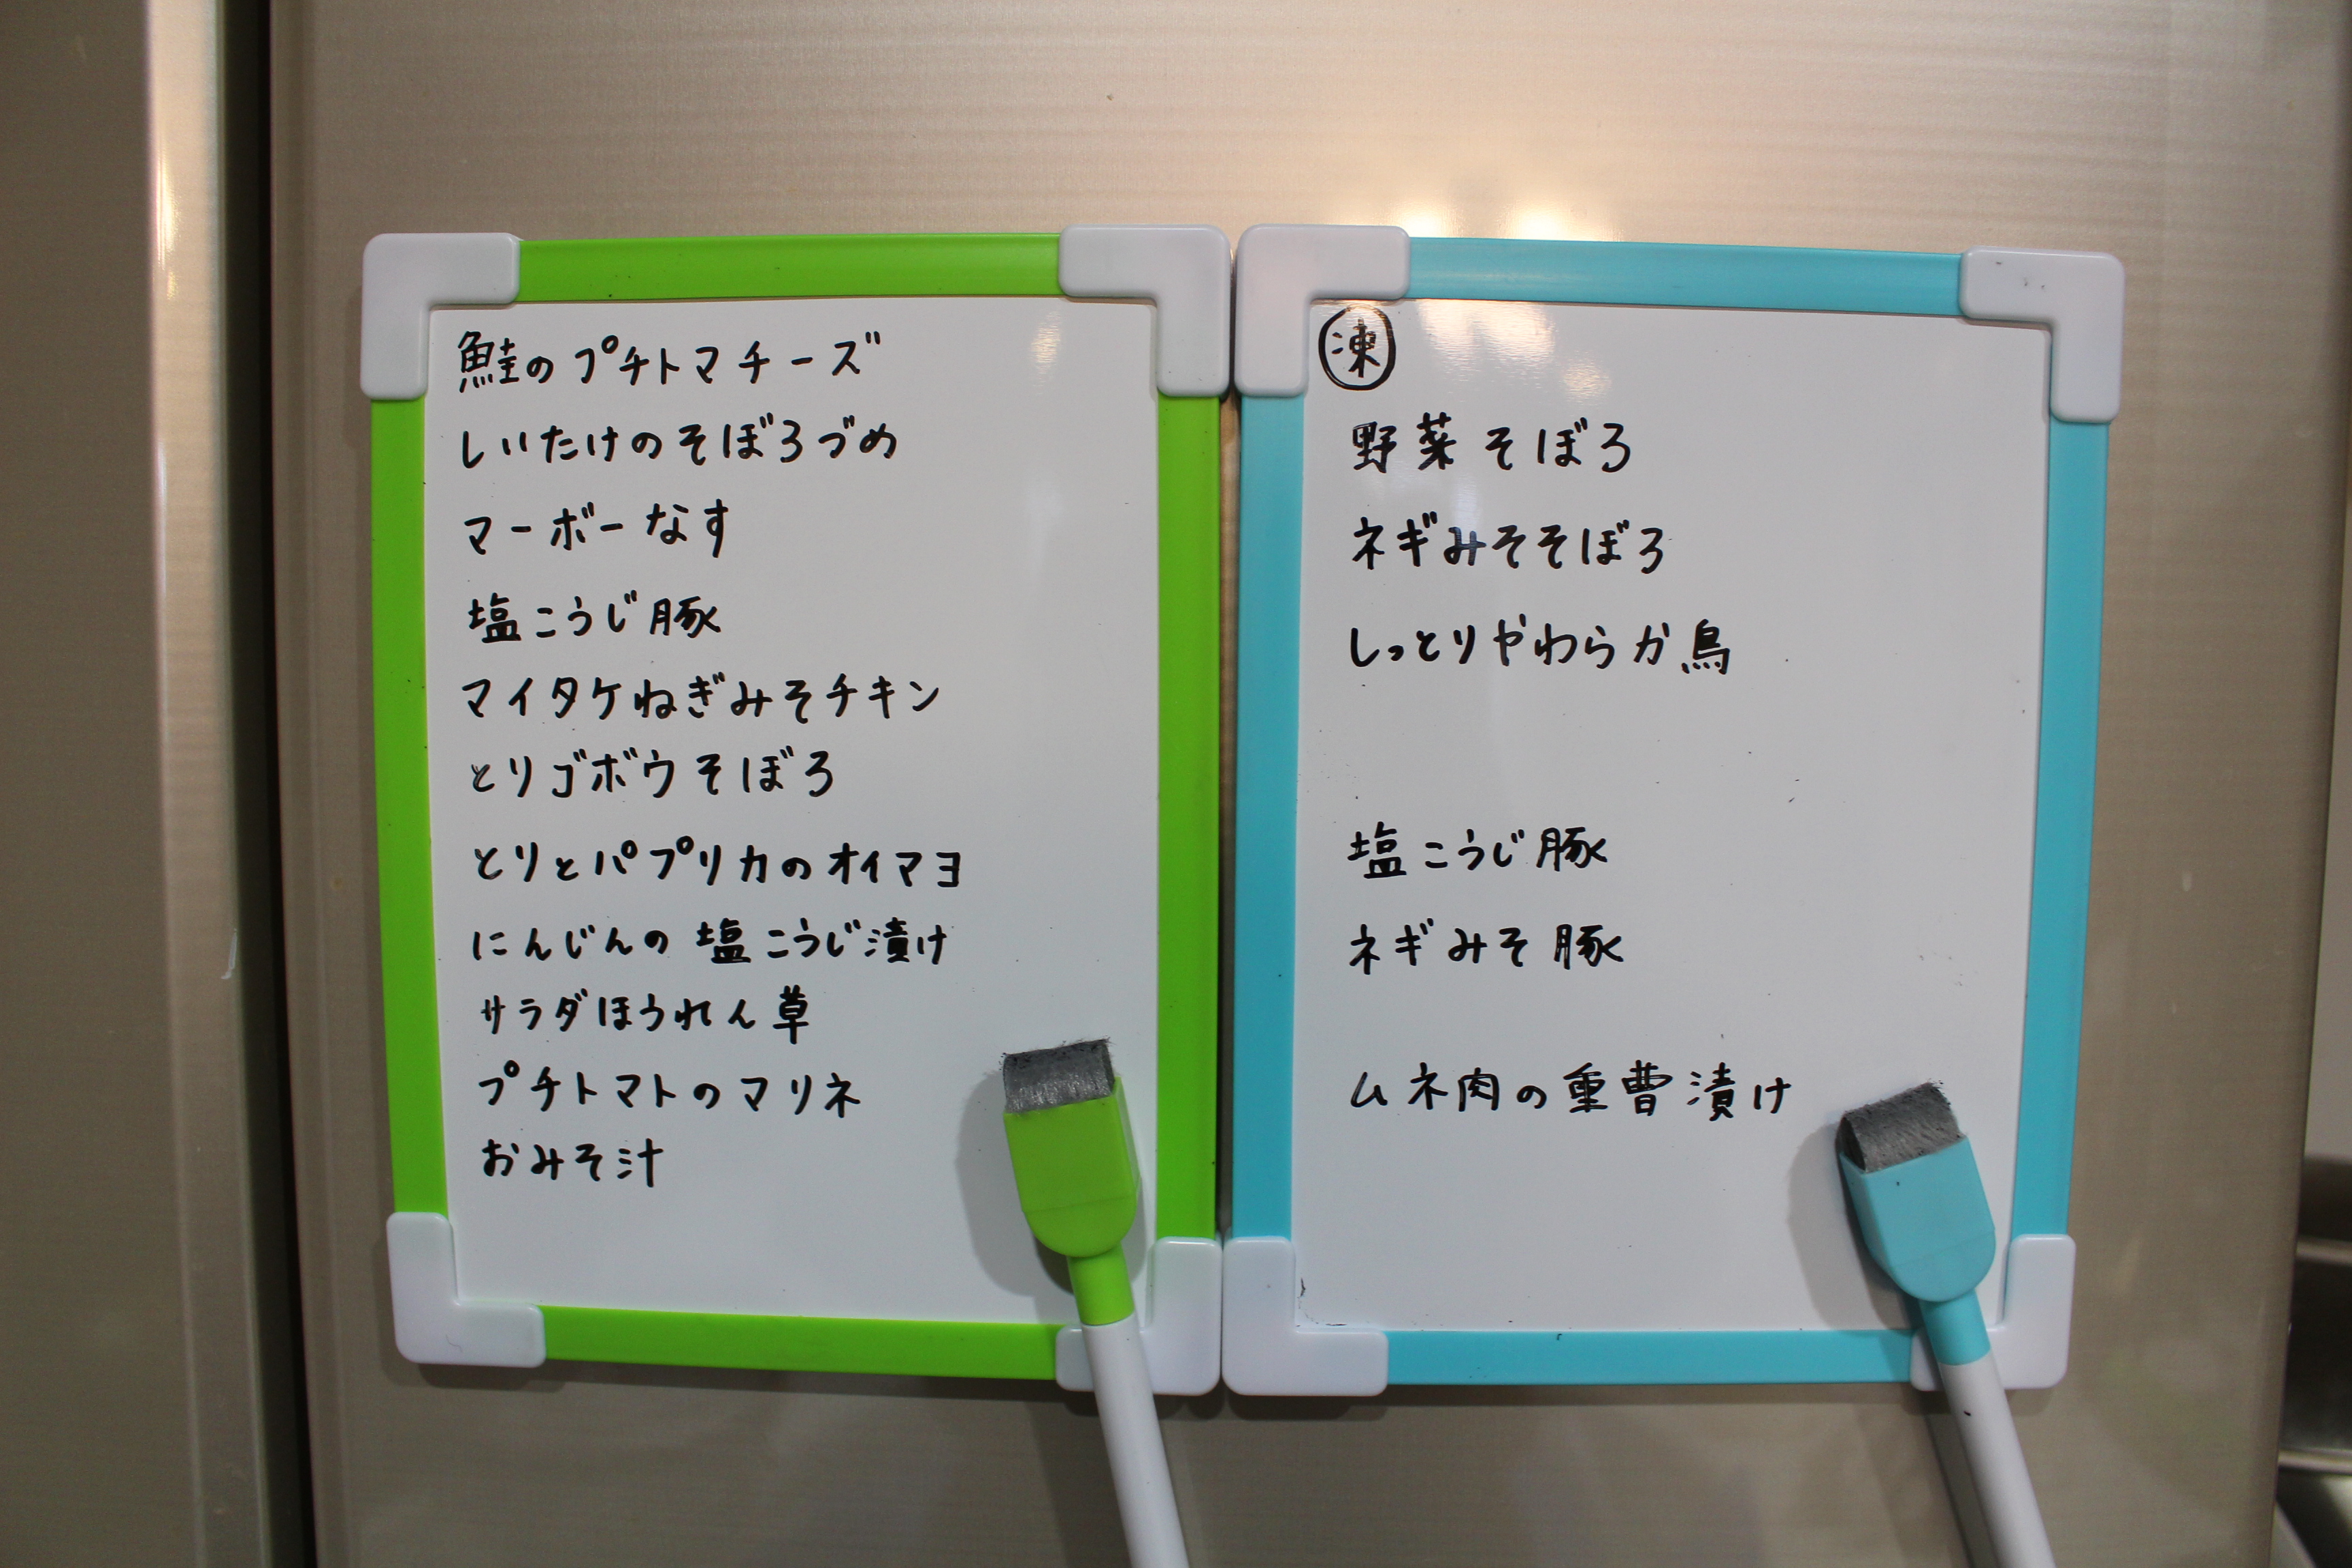 鮭のプチトマチーズ
しいたけのそぼろづめ
マーボーなす
塩こうじ豚
マイタケねぎみそチキン
とりゴボウそぼろ
とりとパプリカのオイマヨ
にんじんの塩こうじ漬け
サラダほうれん草
プチトマトのマリネ
おみそ汁
凍
野菜そぼろ
ネギみそそぼろ
しっとりやわらか鳥
塩こうじ豚
ネギみそ豚
ムネ肉の重曹漬け